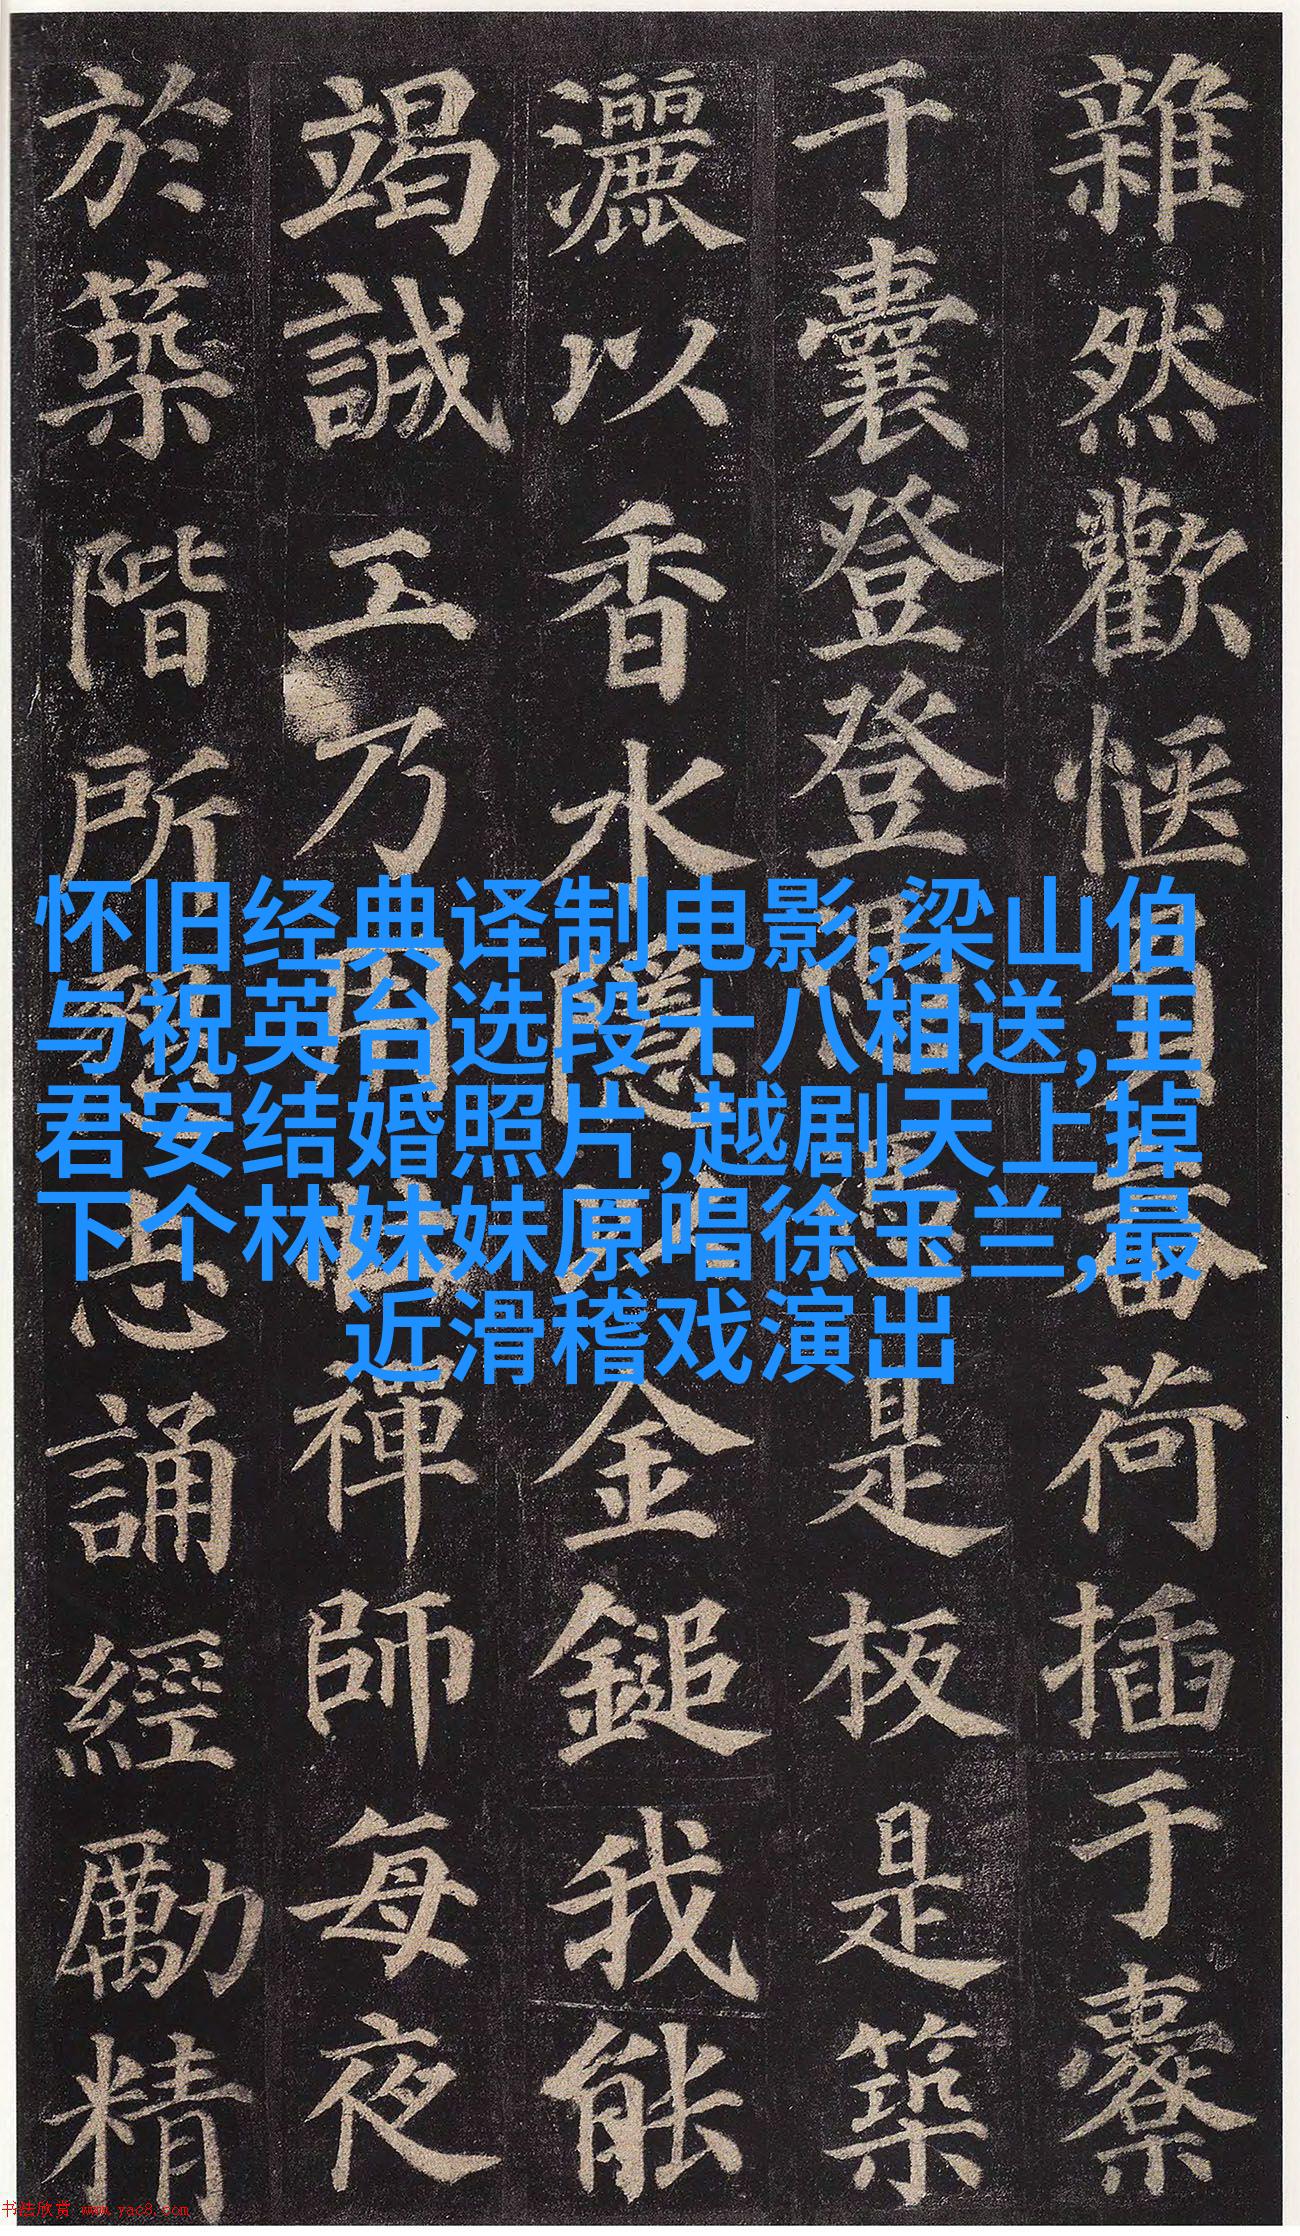 雜然歡愜負畚荷插于橐
于囊登登憑憑是板是築
灑以香水隱以金鎚我能
竭誠工乃用壯禪師每夜
於築階所懇志誦經勵精
怀旧经典译制电影,梁山伯
与祝英台选段十八相送,王
君安结婚照片,越剧天上掉
下个林妹妹原唱徐玉兰,最
近滑稽戏演出
书法欣赏 www.yac8.com